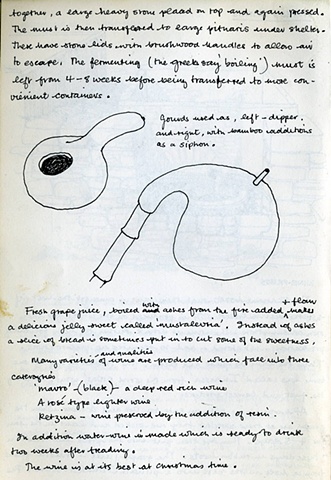 together, a large heavy stone placed on top and again pressed.
The must is then transferred to large pitharis under shelter.
These have stone lids with brushwood handles to allow air
to escape. The fermenting (the greeks say 'boiling') must is
left from 4-8 weeks before being transferred to more con-
vienient containers.
Gourds used as, left - dipper.
and right, with bamboo additions
as a siphon.
+ flour
with
Fresh grape juice, boiled and ashes from the fire added makes
a delicious jelly sweet called 'mustalevria'. Instead of ashes
a slice of bread is sometimes put in to cut some of the sweetness.
and qualities
Many varieties of wine are produced which fall into three
categories
'mavro' - (black) - a deep red rich wine
A rosé type lighter wine
Retzina - wine preserved by the addition of resin.
In addition water-wine is made which is ready to drink
two weeks after treading.
The wine is at its best at christmas time.